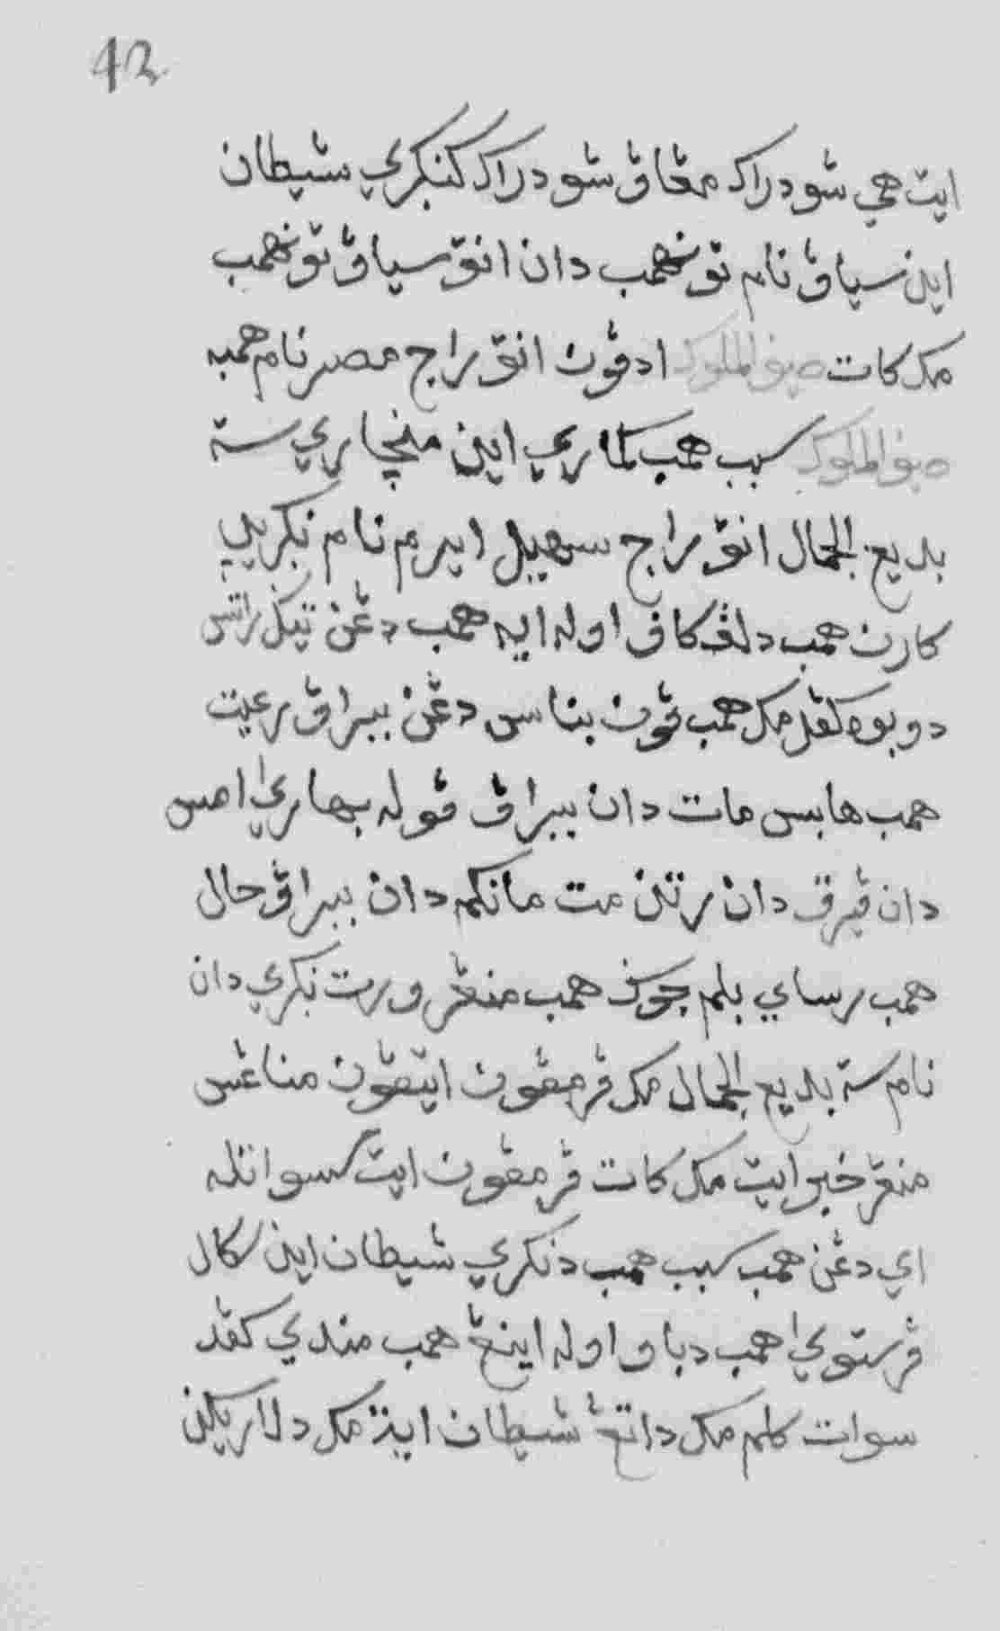 42
ايت همي شودراک مڠاڤ شودراک کنکري شيطان
اين سياڤ نام تونهمب دان انق سياڤ تونهمب
مک کات صيف الملوک ادڤون انق راج مصر نام همبه
صيف الملوک سبب همب کماري اين منچاري ستة
بديع الجمال انق راج سهيل ايرم نام نکريڽ
کارن همب دلڤکاڤ اوله ايه همب دڠن
دوبوه کڤل مک همب ڤون بناس دڠن ببراڤ رعيت
همب هابس مات دان ببراڤ ڤوله بهاري امس
دان ڤيرق دان رتن مت مانکم دان ببراڤ حال
همب رساي بلم جوک همب منڠر ورت نکري دان
نام ستة بديع الجمال مک ڤرمڤون ايتڤون مناڠس
منڠر خبر ايت مک کات ڤرمڤون ايت سوانله
اي دڠن همب سبب همب دنکري شيطان اين سکال
ڤرستوي همب دباو اوله اينڠ همب مندي کڤد
سوات کلم مک داتڠ شيطان اين مک دلاريکن